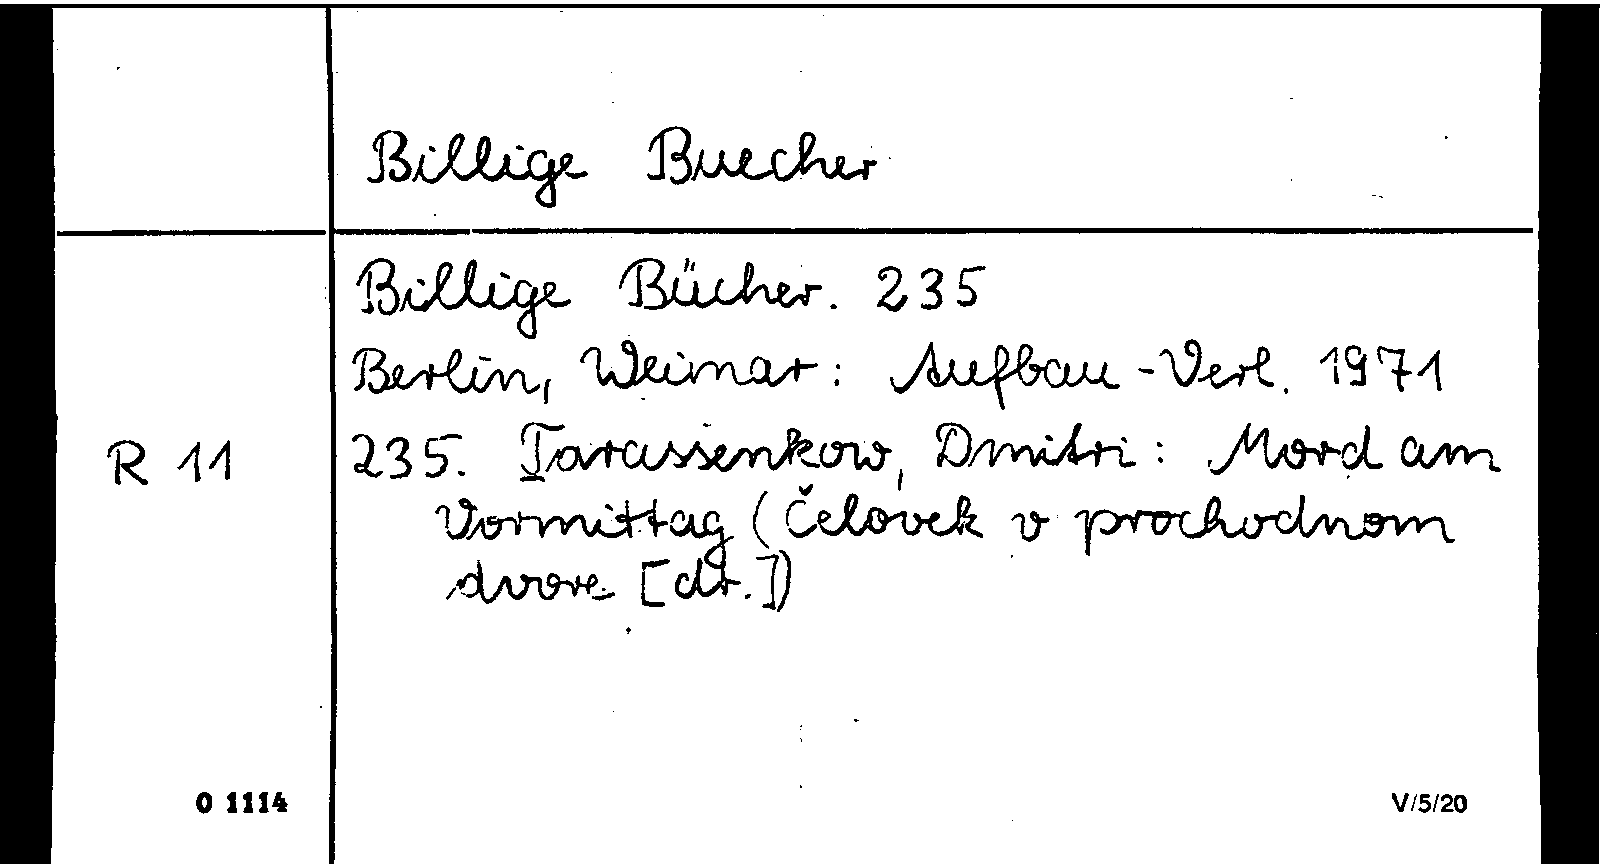 Billige Buecher
Billige Bücher. 235
Berlin, Weimar: Aufbau-Verl. 1971
R 11
235. Tarassenkow, Dmitri: Mord am
Vormittag (Čelovek v prochodnom
dvore [dt.])
O 1114
V/5/20